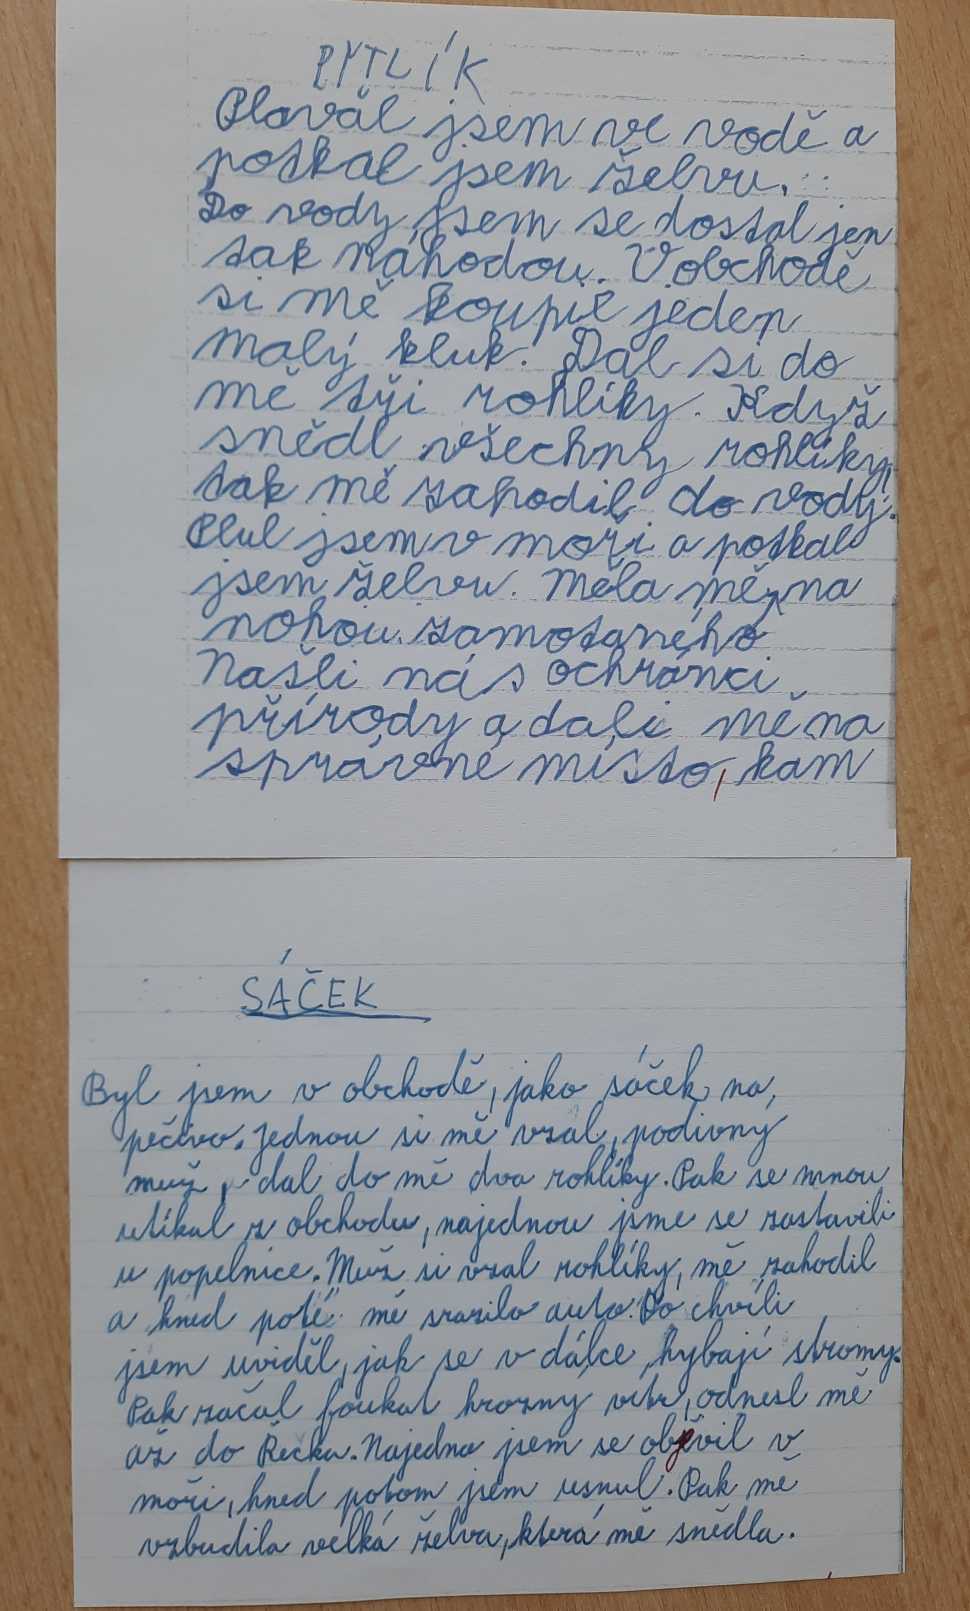 PYTLÍK
Plaval jsem ve vodě a
potkal jsem želvu.
Do vody jsem se dostal jen
tak náhodou. V obchodě
si mě koupil jeden
malý kluk. Dal si do
mě tři rohlíky. Když
snědl všechny rohlíky,
tak mě zahodil do vody.
Plul jsem v moři a potkal
jsem želvu. Měla mě na
nohou zamotaného
Našli nás ochránci
přírody a dali mě na
správné místo, kam
SÁČEK
Byl jsem v obchodě, jako sáček na
pečivo. Jednou si mě vzal, podivný
muž, dal do mě dva rohlíky. Pak se mnou
utíkal z obchodu, najednou jsme se zastavili
u popelnice. Muž si vzal rohlíky, mě zahodil
a hned poté mě srazilo auto. Po chvíli
jsem uviděl, jak se v dálce hybají stromy.
Pak začal foukat hrozny vítr, odnesl mě
až do Řecka. Najedno jsem se objevil v
moři, hned potom jsem usnul. Pak mě
vzbudila velká želva, která mě snědla.